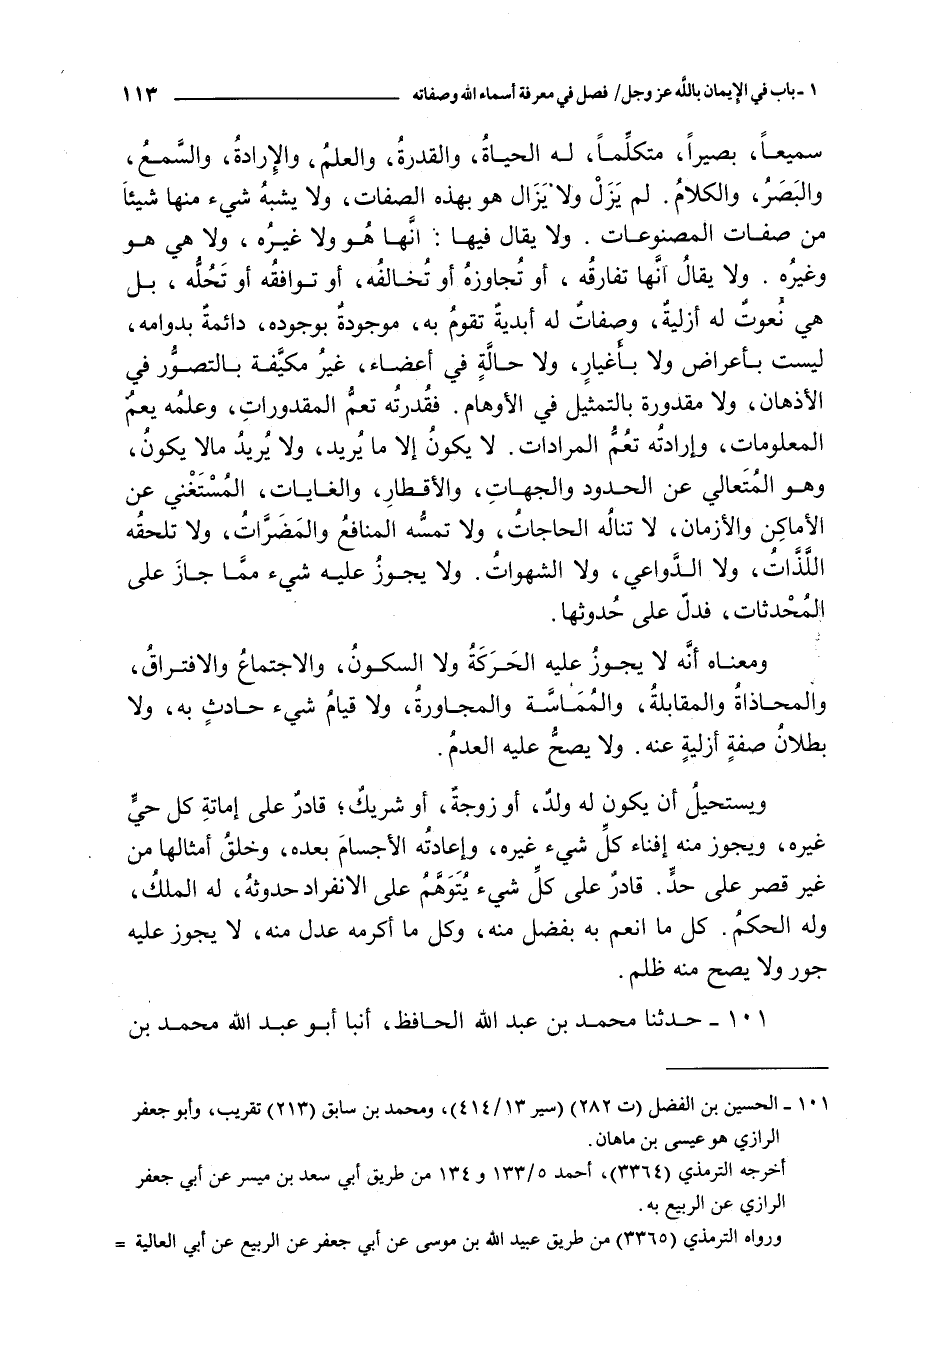 ١ - باب في الإيمان باللَّه عز وجل/ فصل في معرفة أسماء الله وصفاته ــــــــــــ ١١٣
سميعـاً، بصيراً، متكلِّمـاً، لـه الحيـاةُ، والقدرةُ، والعلمُ، والإِرادةُ، والسَّمـعُ،
والبَصَرُ، والكلامُ. لم يَزَلْ ولا يَزَال هو بهذه الصفات، ولا يشبهُ شيء منها شيئاً
من صفـات المصنوعـات . ولا يقال فيهـا : انَّهـا هُـو ولا غيـرُه ، ولا هي هـو
وغيرُه . ولا يقالُ أنَّها تفارقُه ، أو تُجاوزهُ أو تُخـالفُه، أو تـوافقُه أو تَحُلُّه ، بـل
هي نُعوتٌ له أزليةٌ، وصفاتٌ له أبديةٌ تقومُ به، موجودةٌ بوجوده، دائمةٌ بدوامه،
ليست بـأعراض ولا بـأغيارٍ، ولا حـالَّةٍ في أعضـاء، غيرُ مكيَّفـة بـالتصـوُّر في
الأذهان، ولا مقدورة بالتمثيل في الأوهام. فقُدرتُه تعمُّ المقدوراتِ، وعلمُه يعمُّ
المعلومات، وإرادتُه تعُمُّ المرادات. لا يكونُ إلا ما يُريد، ولا يُريدُ مالا يكونُ،
وهـو المُتعالي عن الحـدود والجهـاتِ، والأقـطارِ، والغـايـات، المُسْتَغْني عن
الأماكِن والأزمان، لا تنالُه الحاجاتُ، ولا تمسُّه المنافعُ والمَضَرَّاتُ، ولا تلحقُه
اللَّذَّاتُ، ولا الـدَّواعي، ولا الشهواتُ. ولا يجـوزُ عليـه شيء ممَّـا جـازَ على
المُحْدثات، فدلّ على حُدوثها.
ومعنـاه أنَّه لا يجـوزُ عليه الحَرَكَةُ ولا السكـونُ، والاجتماعُ والافتـراقُ،
والمحـاذاةُ والمقابلةُ، والمُمَاسَّـة والمجـاورةُ، ولا قيامُ شيء حـادثٍ به، ولا
بطلانُ صفةٍ أزليةٍ عنه. ولا يصحُّ عليه العدمُ.
ويستحيلُ أن يكون له ولدٌ، أو زوجةٌ، أو شريكٌ؛ قادرٌ على إماتةِ كل حيٍّ
غيره، ويجوز منه إفناء كلِّ شيء غيره، وإعادتُه الأجسامَ بعده، وخلقُ أمثالها من
غير قصر على حدٍّ. قادرٌ على كلِّ شيء يُتَوَهَّمُ على الانفراد حدوثهُ، له الملكُ،
وله الحكمُ. كل ما انعم به بفضل منه، وكل ما أكرمه عدل منه، لا يجوز عليه
جور ولا يصح منه ظلم.
١٠١ ـ حـدثنا محمـد بن عبد الله الحـافظ، أنبا أبـو عبـد الله محمـد بن
١٠١ ـ الحسين بن الفضل (ت ٢٨٢) (سير ١٣/٤١٤)، ومحمد بن سابق (٢١٣) تقريب، وأبو جعفر
الرازي هو عيسى بن ماهان.
أخرجه الترمذي (٣٣٦٤)، أحمد ٥/١٣٣ و ١٣٤ من طريق أبي سعد بن ميسر عن أبي جعفر
الرازي عن الربيع به.
ورواه الترمذي (٣٣٦٥) من طريق عبيد الله بن موسى عن أبي جعفر عن الربيع عن أبي العالية =